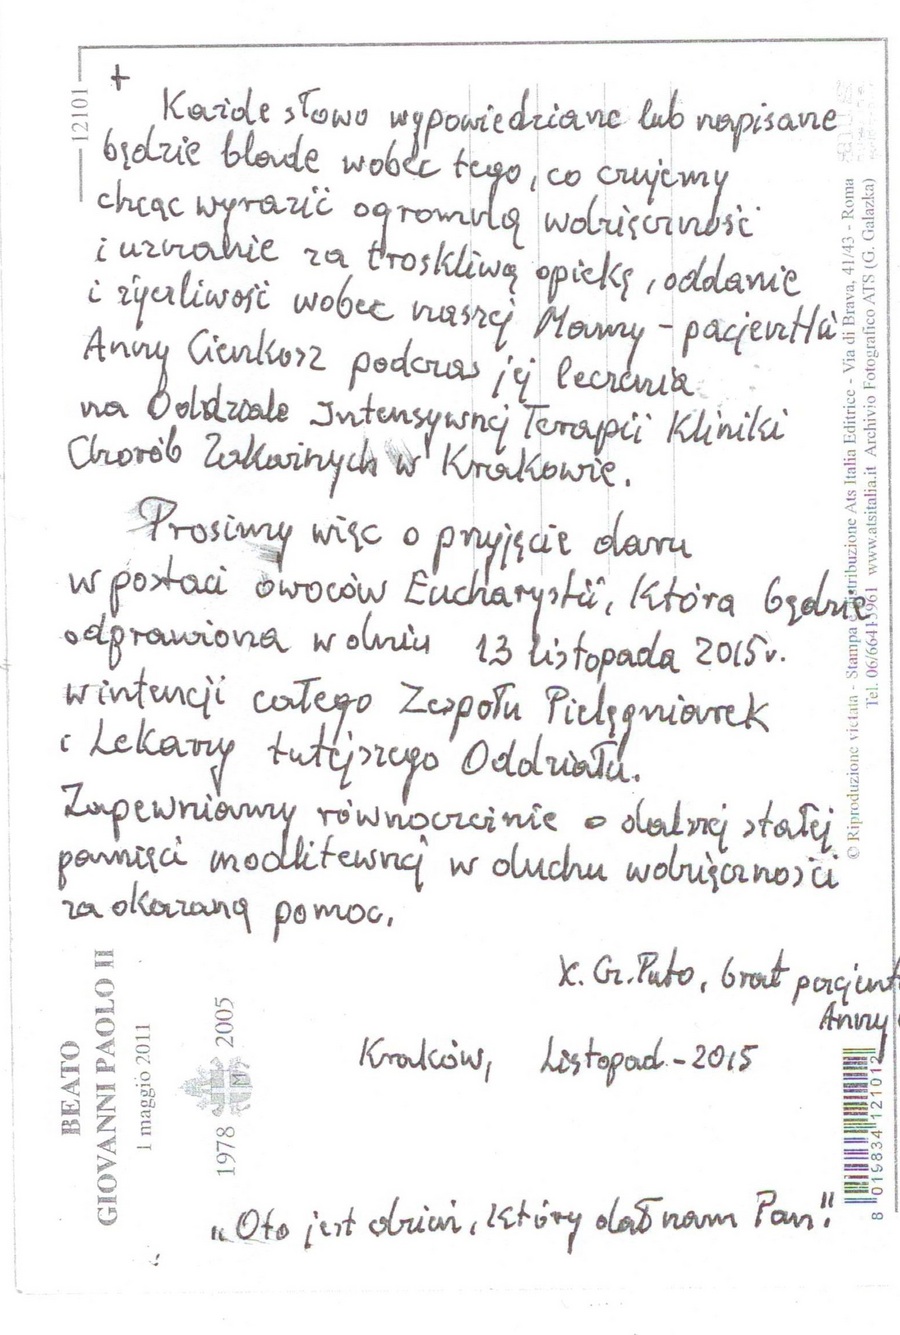 +
Każde słowo wypowiedziane lub napisane
będzie blade wobec tego, co czujemy
chcąc wyrazić ogromną wdzięczność
i uznanie za troskliwą opiekę, oddanie
i życzliwość wobec naszej Mamy - pacjentki
Anny Cienkosz podczas jej leczenia
na Oddziale Intensywnej Terapii Kliniki
Chorób Zakaźnych w Krakowie.
Prosimy więc o przyjęcie daru
w postaci owoców Eucharystii, która będzie
odprawiona w dniu 13 listopada 2015r.
w intencji całego Zespołu Pielęgniarek
i Lekarzy tutejszego Oddziału.
Zapewniamy równocześnie o dalszej stałej
pamięci modlitewnej w duchu wdzięczności
za okazaną pomoc.
X. Gr. Puto, brat pacjent
Anny
Kraków, Listopad - 2015
„Oto jest dzień, który dał nam Pan".
12101
BEATO
GIOVANNI PAOLO II
1 maggio 2011
1978 2005
© Riproduzione vietata - Stampa e distribuzione Ats Italia Editrice - Via di Brava, 41/43 - Roma
Tel. 06/66415961 www.atsitalia.it Archivio Fotografico ATS (G. Galazka)
8 019834 121012